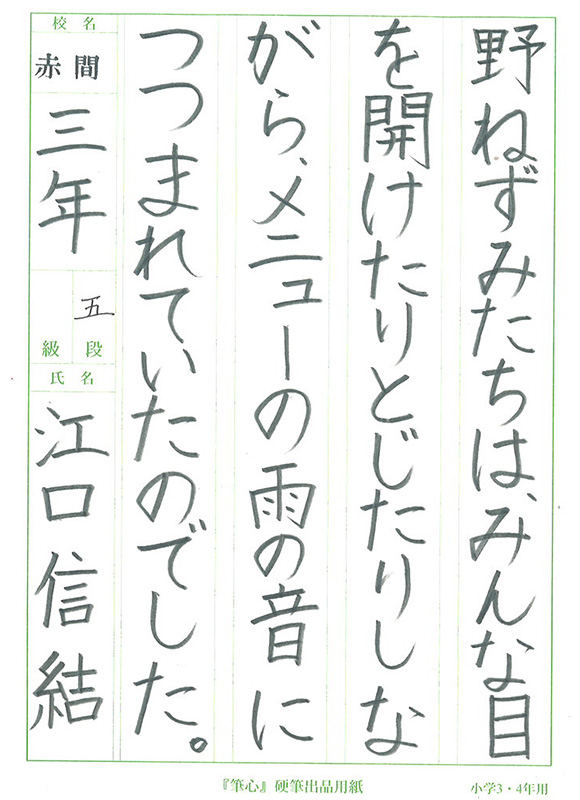 野ねずみたちは、みんな目
を開けたりとじたりしな
がら、メニューの雨の音に
つつまれていたのでした。
校名
赤間
三年
五
段
級
氏名
江口信結
『筆心』硬筆出品用紙
小学3・4年用